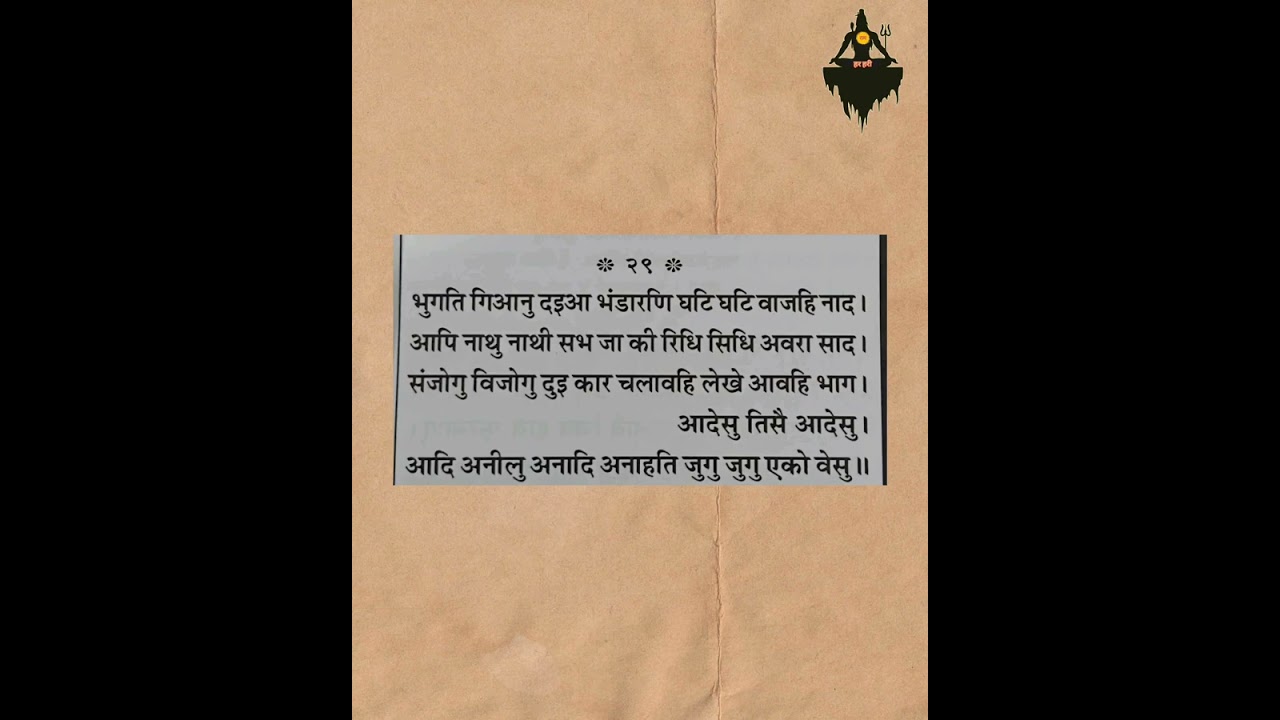 हर हरी
❊ २९ ❊
भुगति गिआनु दइआ भंडारणि घटि घटि वाजहि नाद।
आपि नाथु नाथी सभ जा की रिधि सिधि अवरा साद।
संजोगु विजोगु दुइ कार चलावहि लेखे आवहि भाग।
आदेसु तिसै आदेसु।
आदि अनीलु अनादि अनाहति जुगु जुगु एको वेसु॥